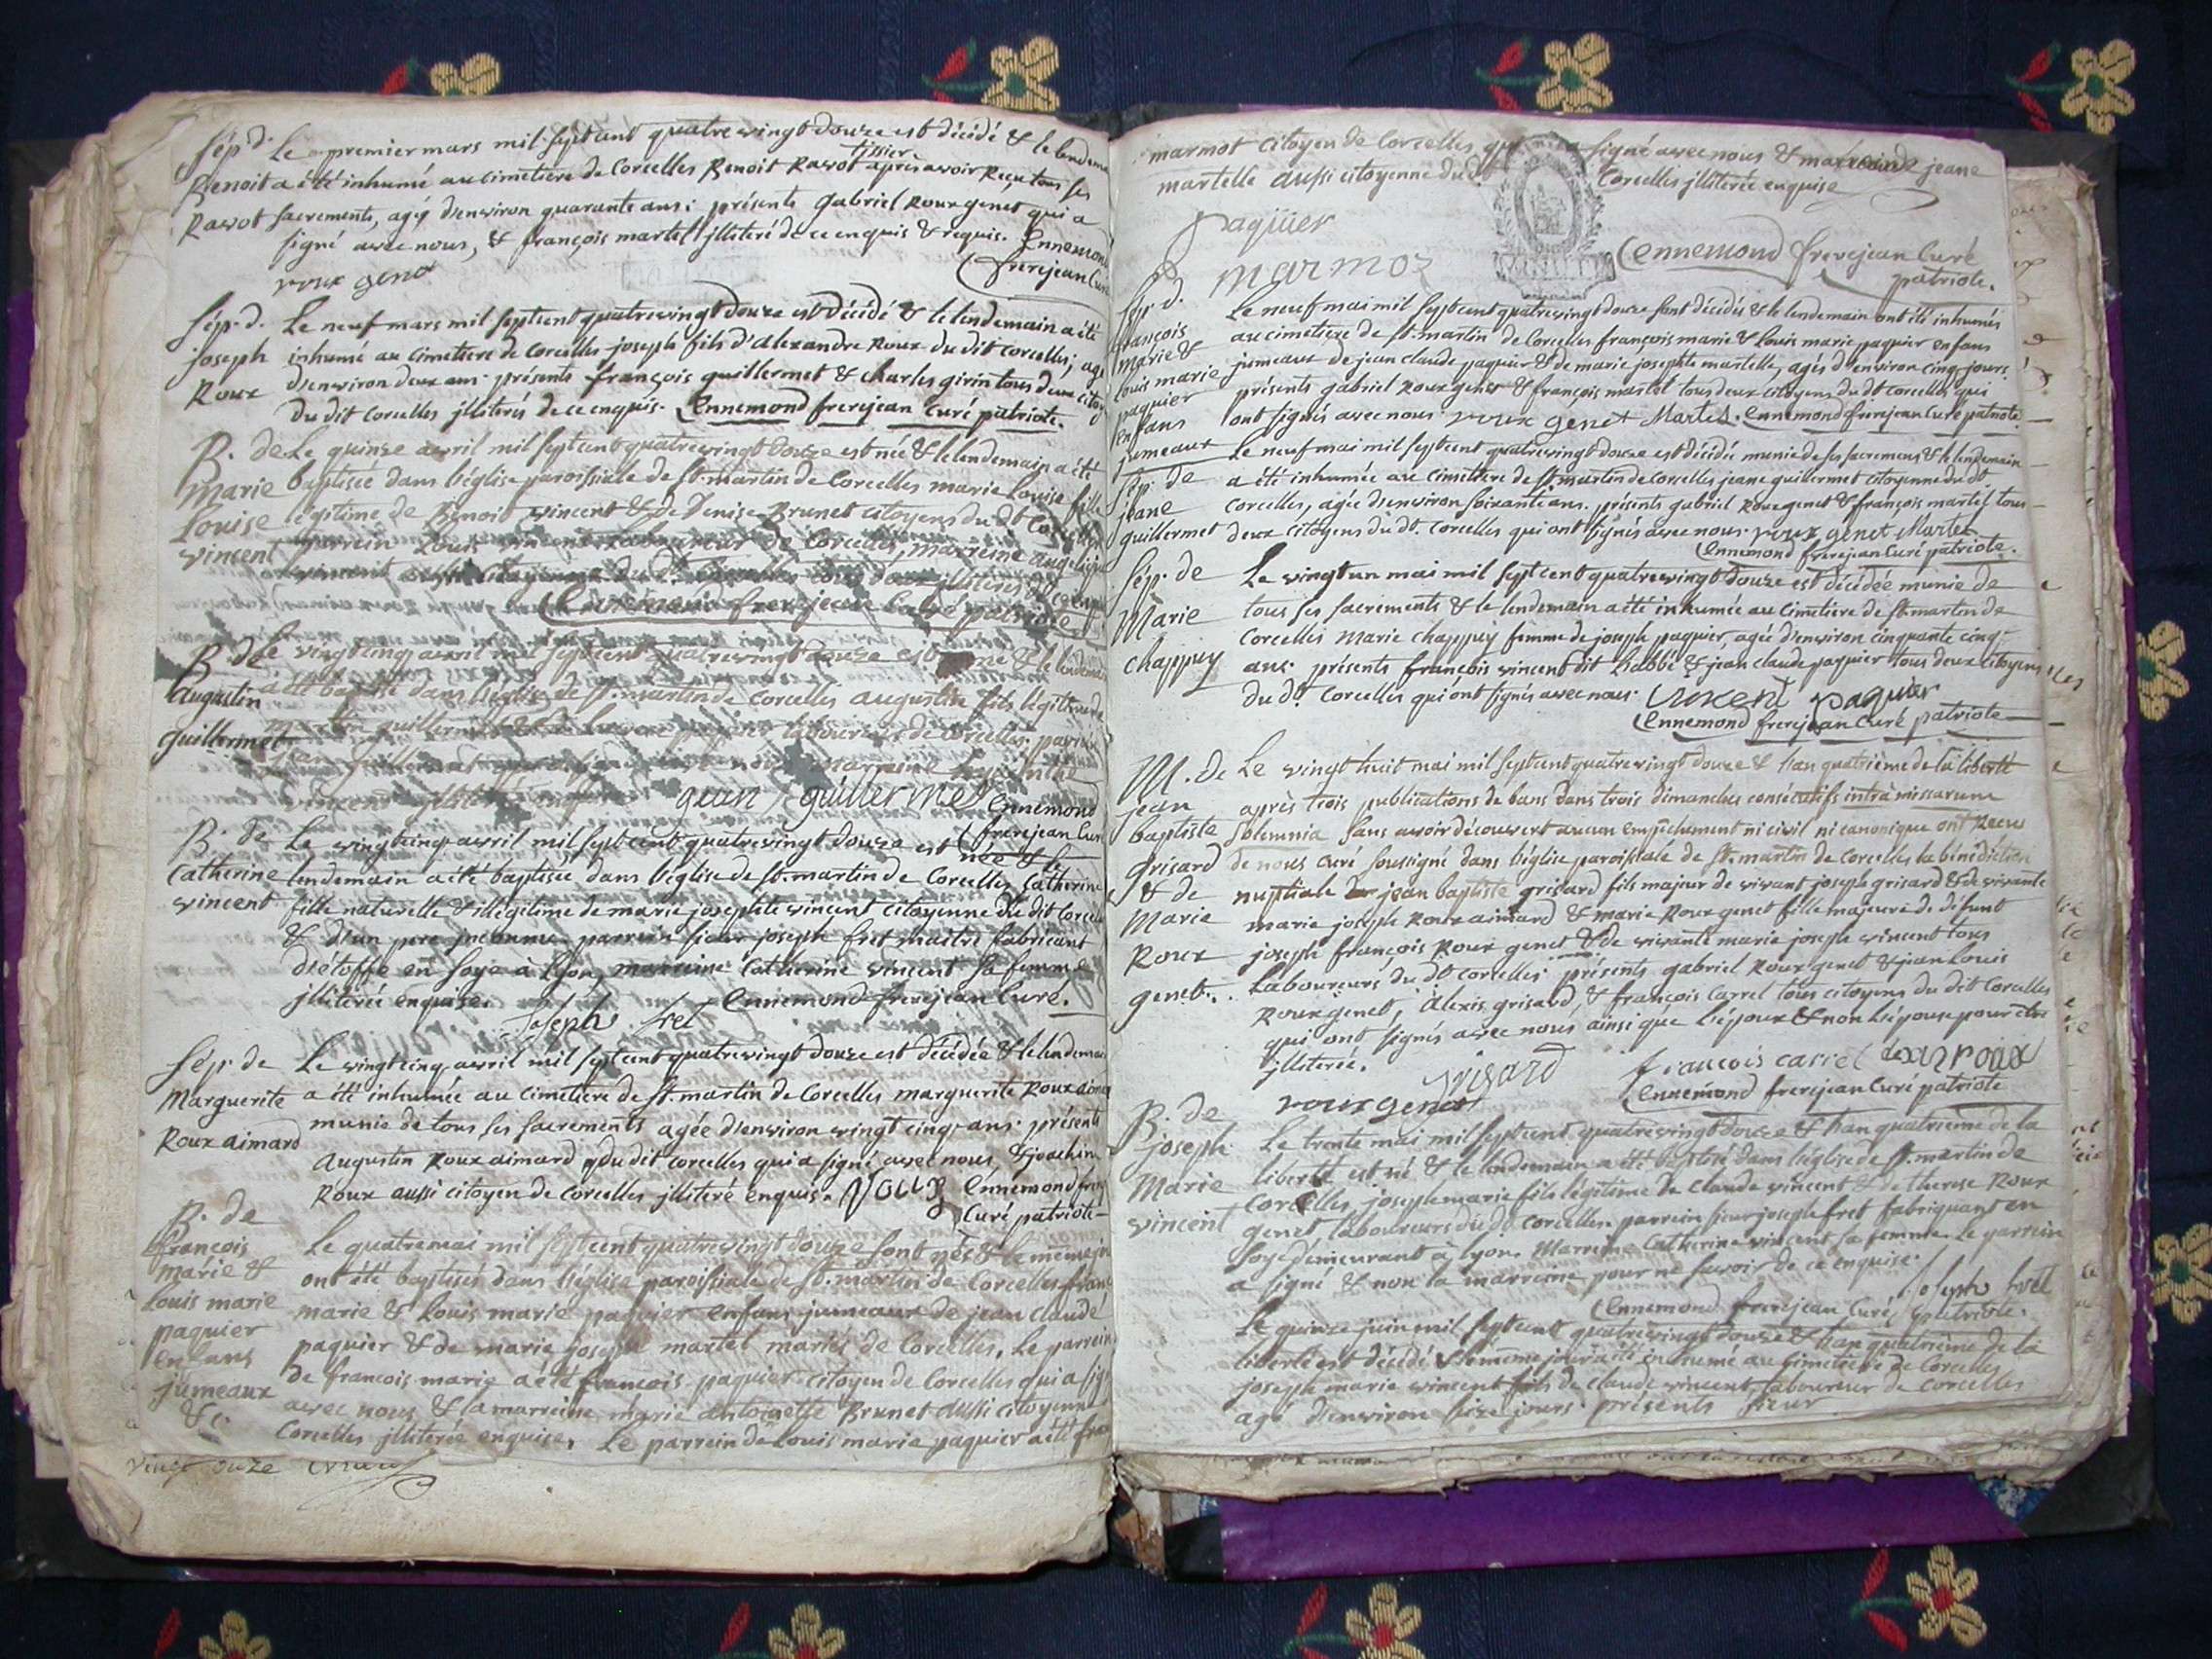 Sép. d. Le premier mars mil sept cent quatre vingt douze est décédé & le lendem
Benoit a été inhumé au cimetière de Corcelles Benoit Ravot tissier après avoir reçu tous ses
Ravot sacrements, agé d'environ quarante ans: présents gabriel Roux genet qui a
signé avec nous, & françois martel jlliteré de ce enquis & requis. Ennemond
roux genet frerejean Curé
Sép. d. Le neuf mars mil sept cent quatre vingt douze est décédé & le lendemain a été
joseph inhumé au cimetiere de Corcelles joseph fils d'alexandre Roux du dit corcelles, agé
Roux d'environ deux ans. présents françois guillermet & charles girin tous deux citoy
du dit corcelles jlliterés de ce enquis. Ennemond frerejean Curé patriote.
B. de Le quinze avril mil sept cent quatre vingt douze est née & le lendemain a été
Marie baptisée dans l'église paroissiale de St. martin de Corcelles marie Louise fille
Louise légitime de Benoit vincent & de Denise Brunet citoyens du dt Corcelles
vincent parrein Louis vincent laboureur de Corcelles, marreine angelique
vincent aussi citoyenne du dt. Corcelles tous deux jlliterés de ce enquis
Ennemond frerejean Curé patriote
B. de Le vingt cinq avril mil sept cent quatre vingt douze est né & le lendemain
augustin a été baptisé dans l'église de St. martin de Corcelles augustin fils légitime de
guillermet guillermet laboureurs de corcelles. parrein
jean guillermet marreine
vincent jlliterée jean guillermet Ennemond
frerejean Curé
B. de Le vingt cinq avril mil sept cent quatre vingt douze est née & le
Catherine lendemain a été baptisée dans l'église de St. martin de Corcelles Catherine
vincent fille naturelle & illégitime de marie josephte vincent citoyenne du dit Corcelles
& d'un pere jnconnu. parrein sieur joseph fret maitre fabricant
d'étoffe en soye à Lyon, marreine Catherine vincent sa femme
jlliterée enquise. Ennemond frerejean Curé.
Joseph fret
Sép. de Le vingt cinq avril mil sept cent quatre vingt douze est décédée & le lendemain
Marguerite a été inhumée au cimetiere de St. martin de Corcelles marguerite Roux aimar
Roux aimard munie de tous ses sacrements agée d'environ vingt cinq ans. présents
augustin Roux aimard du dit corcelles qui a signé avec nous & joachim
Roux aussi citoyen de Corcelles jlliteré enquis. roux Ennemond frerej
Curé patriote
B. de
françois Le quatre mai mil sept cent quatre vingt douze sont nés & le meme jo
marie & ont été baptisés dans l'église paroissiale de St. martin de Corcelles franc
Louis marie marie & Louis marie paquier enfans jumeaux de jean claude
paquier paquier & de marie joseph martel mariés de Corcelles. Le parrein
enfans de françois marie a été françois paquier citoyen de Corcelles qui a sig
jumeaux avec nous & la marreine marie antoinette Brunet aussi citoyenne
&c. Corcelles jlliterée enquise. Le parrein de Louis marie paquier a été fran
vingt onze
marmot citoyen de Corcelles qui a signé avec nous & marreine jeane
martelle aussi citoyenne du dt Corcelles jlliterée enquise
paquier
marmoz Ennemond frerejean Curé
patriote.
Sép. d. Le neuf mai mil sept cent quatre vingt douze sont décédés & le lendemain ont été inhumés
françois au cimetiere de St. martin de Corcelles françois marie & Louis marie paquier enfans
marie & jumeaux de jean claude paquier & de marie josephte martelle, agés d'environ cinq jours.
Louis marie présents gabriel Roux genet & françois martel tous deux citoyens du dt corcelles qui
paquier ont signés avec nous. roux genet Martel. Ennemond frerejean Curé patriote.
enfans
jumeaux Le neuf mai mil sept cent quatre vingt douze est décédée munie de ses sacremens & le lendemain
Sép. de a été inhumée au cimetiere de St. martin de Corcelles jeane guillermet citoyenne du dt
jeane corcelles, agée d'environ soixante ans. présents gabriel Roux genet & françois martel tous
guillermet deux citoyens du dt. Corcelles qui ont signés avec nous. roux genet Martel
Ennemond frerejean Curé patriote.
Sép. de Le vingt un mai mil sept cent quatre vingt douze est décédée munie de
Marie tous ses sacrements & le lendemain a été inhumée au cimetiere de St. martin de
chappuy Corcelles Marie chappuy femme de joseph paquier, agée d'environ cinquante cinq
ans. présents françois vincent dit Labbé & jean claude paquier tous deux citoyens
du dt. Corcelles qui ont signés avec nous. vincent paquier
Ennemond frerejean Curé patriote
M. de Le vingt huit mai mil sept cent quatre vingt douze & l'an quatrième de la liberté
jean après trois publications de bans dans trois dimanches consécutifs intrà missarum
baptiste solemnia sans avoir découvert aucun empêchement ni civil ni canonique ont reçu
grisard de nous curé soussigné dans l'église paroissiale de St. martin de Corcelles la bénédiction
& de nuptiale jean baptiste grisard fils majeur de vivant joseph grisard & de vivante
Marie marie joseph Roux aimard & marie Roux genet fille majeure de défunt
Roux joseph françois Roux genet & de vivante marie joseph vincent tous
genet. Laboureurs du dt corcelles. présents gabriel Roux genet & jean Louis
Roux genet, alexis grisard, & françois Carrel tous citoyens du dit Corcelles
qui ont signés avec nous ainsi que l'époux & non l'épouse pour être
jlliterée. grisard francois carrel roux
roux genet Ennemond frerejean Curé patriote
B. de
joseph Le trente mai mil sept cent quatre vingt douze & l'an quatrieme de la
Marie liberté est né & le lendemain a été baptisé dans l'église de St. martin de
vincent Corcelles, joseph marie fils légitime de Claude vincent & de therese Roux
genet, laboureurs du dt Corcelles. parrein sieur joseph fret fabriquant en
soye demeurant à Lyon. Marreine Catherine vincent sa femme. Le parrein
a signé & non la marreine pour ne savoir de ce enquise.
Joseph fret
Ennemond frerejean Curé, patriote.
Le quinze juin mil sept cent quatre vingt douze & l'an quatrième de la
liberté est décédé & le même jour a été inhumé au cimetière de Corcelles
joseph marie vincent fils de claude vincent, laboureur de Corcelles
agé d'environ seize jours. présents sieur